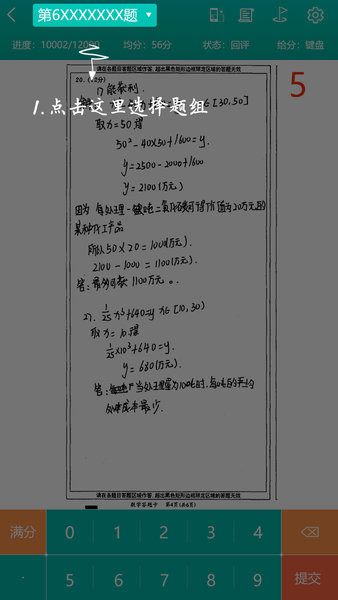 第6XXXXXXX题
进度：10002/12000 均分：56分 状态：回评 给分：键盘
请在各题目答题区域作答，超出黑色矩形边框限定区域的答案无效
20.(12分)
5
1.点击这里选择题组
∈[30,50]
取x=50得
50²-40×50+1600=y.
y=2500-2000+1600
y=2100(万元)
因为
二氧化碳可得价值为20万元的
某种化工产品
所以50×20=1000(万元).
2100-1000=1100(万元).
1100万元。
2).1/25x³+640=y x∈[10,30)
取x=10得
1/25×10³+640=y.
y=680(万元).
答:
当处理量为100吨时,
处理成本最少.
请在各题目答题区域作答，超出黑色矩形边框限定区域的答案无效
数学答题卡 第4页(共6页)
满分 0 1 2 3 4
· 5 6 7 8 9 提交